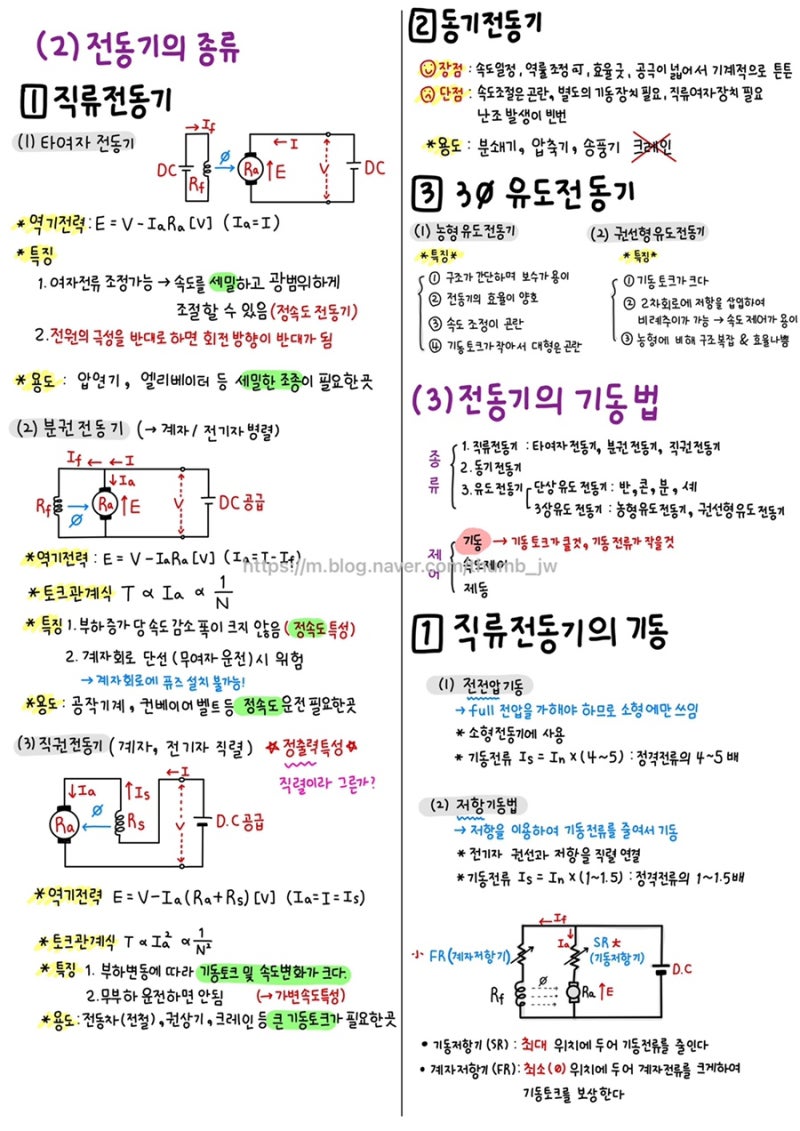 (2) 전동기의 종류
1 직류전동기
(1) 타여자 전동기
If
I
DC
Rf
Ø
Ra
E
V
DC
*역기전력 : E = V - IaRa [V] (Ia = I)
*특징
1. 여자전류 조정가능 → 속도를 세밀하고 광범위하게
조절할 수 있음 (정속도 전동기)
2. 전원의 극성을 반대로 하면 회전 방향이 반대가 됨
*용도 : 압연기, 엘리베이터 등 세밀한 조종이 필요한곳
(2) 분권 전동기 (→ 계자 / 전기자 병렬)
If ← ← I
Ia
Rf
Ø
Ra
E
V
DC 공급
*역기전력 : E = V - IaRa [V] (Ia = I - If)
*토크관계식 T ∝ Ia ∝ 1/N
*특징 1. 부하 증가 당 속도 감소 폭이 크지 않음 (정속도 특성)
2. 계자회로 단선 (무여자 운전) 시 위험
→ 계자회로에 퓨즈 설치 불가능!
*용도 : 공작기계, 컨베이어 벨트 등 정속도 운전 필요한곳
(3) 직권전동기 (계자, 전기자 직렬) ★정출력특성★
직렬이라 그른가?
I
Ia
Is
Ra
Ø
Rs
V
D.C 공급
*역기전력 E = V - Ia (Ra + Rs) [V] (Ia = I = Is)
*토크관계식 T ∝ Ia² ∝ 1/N²
*특징 1. 부하변동에 따라 기동토크 및 속도변화가 크다.
2. 무부하 운전하면 안됨 (→ 가변속도특성)
*용도 : 전동차(전철), 권상기, 크레인 등 큰 기동토크가 필요한곳
2 동기전동기
장점 : 속도일정, 역률 조정 可, 효율굿, 공극이 넓어서 기계적으로 튼튼
단점 : 속도조절은 곤란, 별도의 기동 장치 필요, 직류여자장치 필요
난조 발생이 빈번
*용도 : 분쇄기, 압축기, 송풍기 크레인
3 3Ø 유도전동기
(1) 농형 유도전동기
*특징*
① 구조가 간단하며 보수가 용이
② 전동기의 효율이 양호
③ 속도 조정이 곤란
④ 기동토크가 작아서 대형은 곤란
(2) 권선형 유도전동기
*특징*
① 기동 토크가 크다
② 2차회로에 저항을 삽입하여
비례추이가 가능 → 속도제어가 용이
③ 농형에 비해 구조복잡 & 효율나쁨
(3) 전동기의 기동법
종류
1. 직류전동기 : 타여자 전동기, 분권 전동기, 직권 전동기
2. 동기전동기
3. 유도전동기 단상 유도전동기 : 반, 콘, 분, 셰
3상유도전동기 : 농형유도전동기, 권선형 유도전동기
제어
기동 → 기동토크가 클것, 기동 전류가 작을것
속도제어
제동
https://m.blog.naver.com/thumb_jw
1 직류전동기의 기동
(1) 전전압기동
→ full 전압을 가해야 하므로 소형에만 쓰임
* 소형전동기에 사용
* 기동전류 Is = In × (4~5) : 정격전류의 4~5배
(2) 저항기동법
→ 저항을 이용하여 기동전류를 줄여서 기동
* 전기자 권선과 저항을 직렬 연결
* 기동전류 Is = In × (1~1.5) : 정격전류의 1~1.5배
If
Ia
小 FR (계자저항기)
SR 大
(기동저항기)
Rf
Ø
Ra
E
D.C
• 기동저항기 (SR) : 최대 위치에 두어 기동전류를 줄인다
• 계자저항기 (FR) : 최소(0) 위치에 두어 계자전류를 크게하여
기동토크를 보상한다